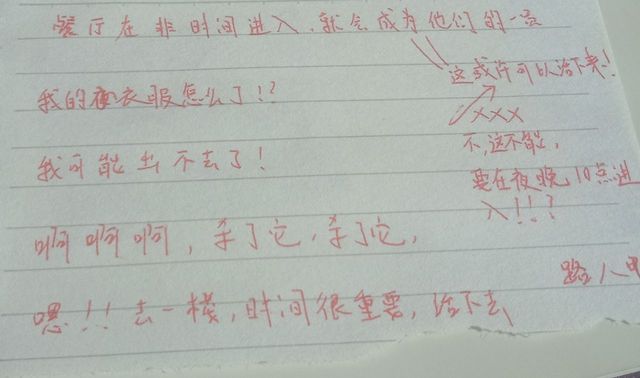 餐厅在非时间进入，就会成为他们的一员
这或许可以活下来！
我的夜衣服怎么了！？
×××
不，这不能，
我可能出不去了！
要在夜晚10点进
入！！？
啊啊啊，杀了它，杀了它，
路人甲
嗯！！去一楼，时间很重要，活下去